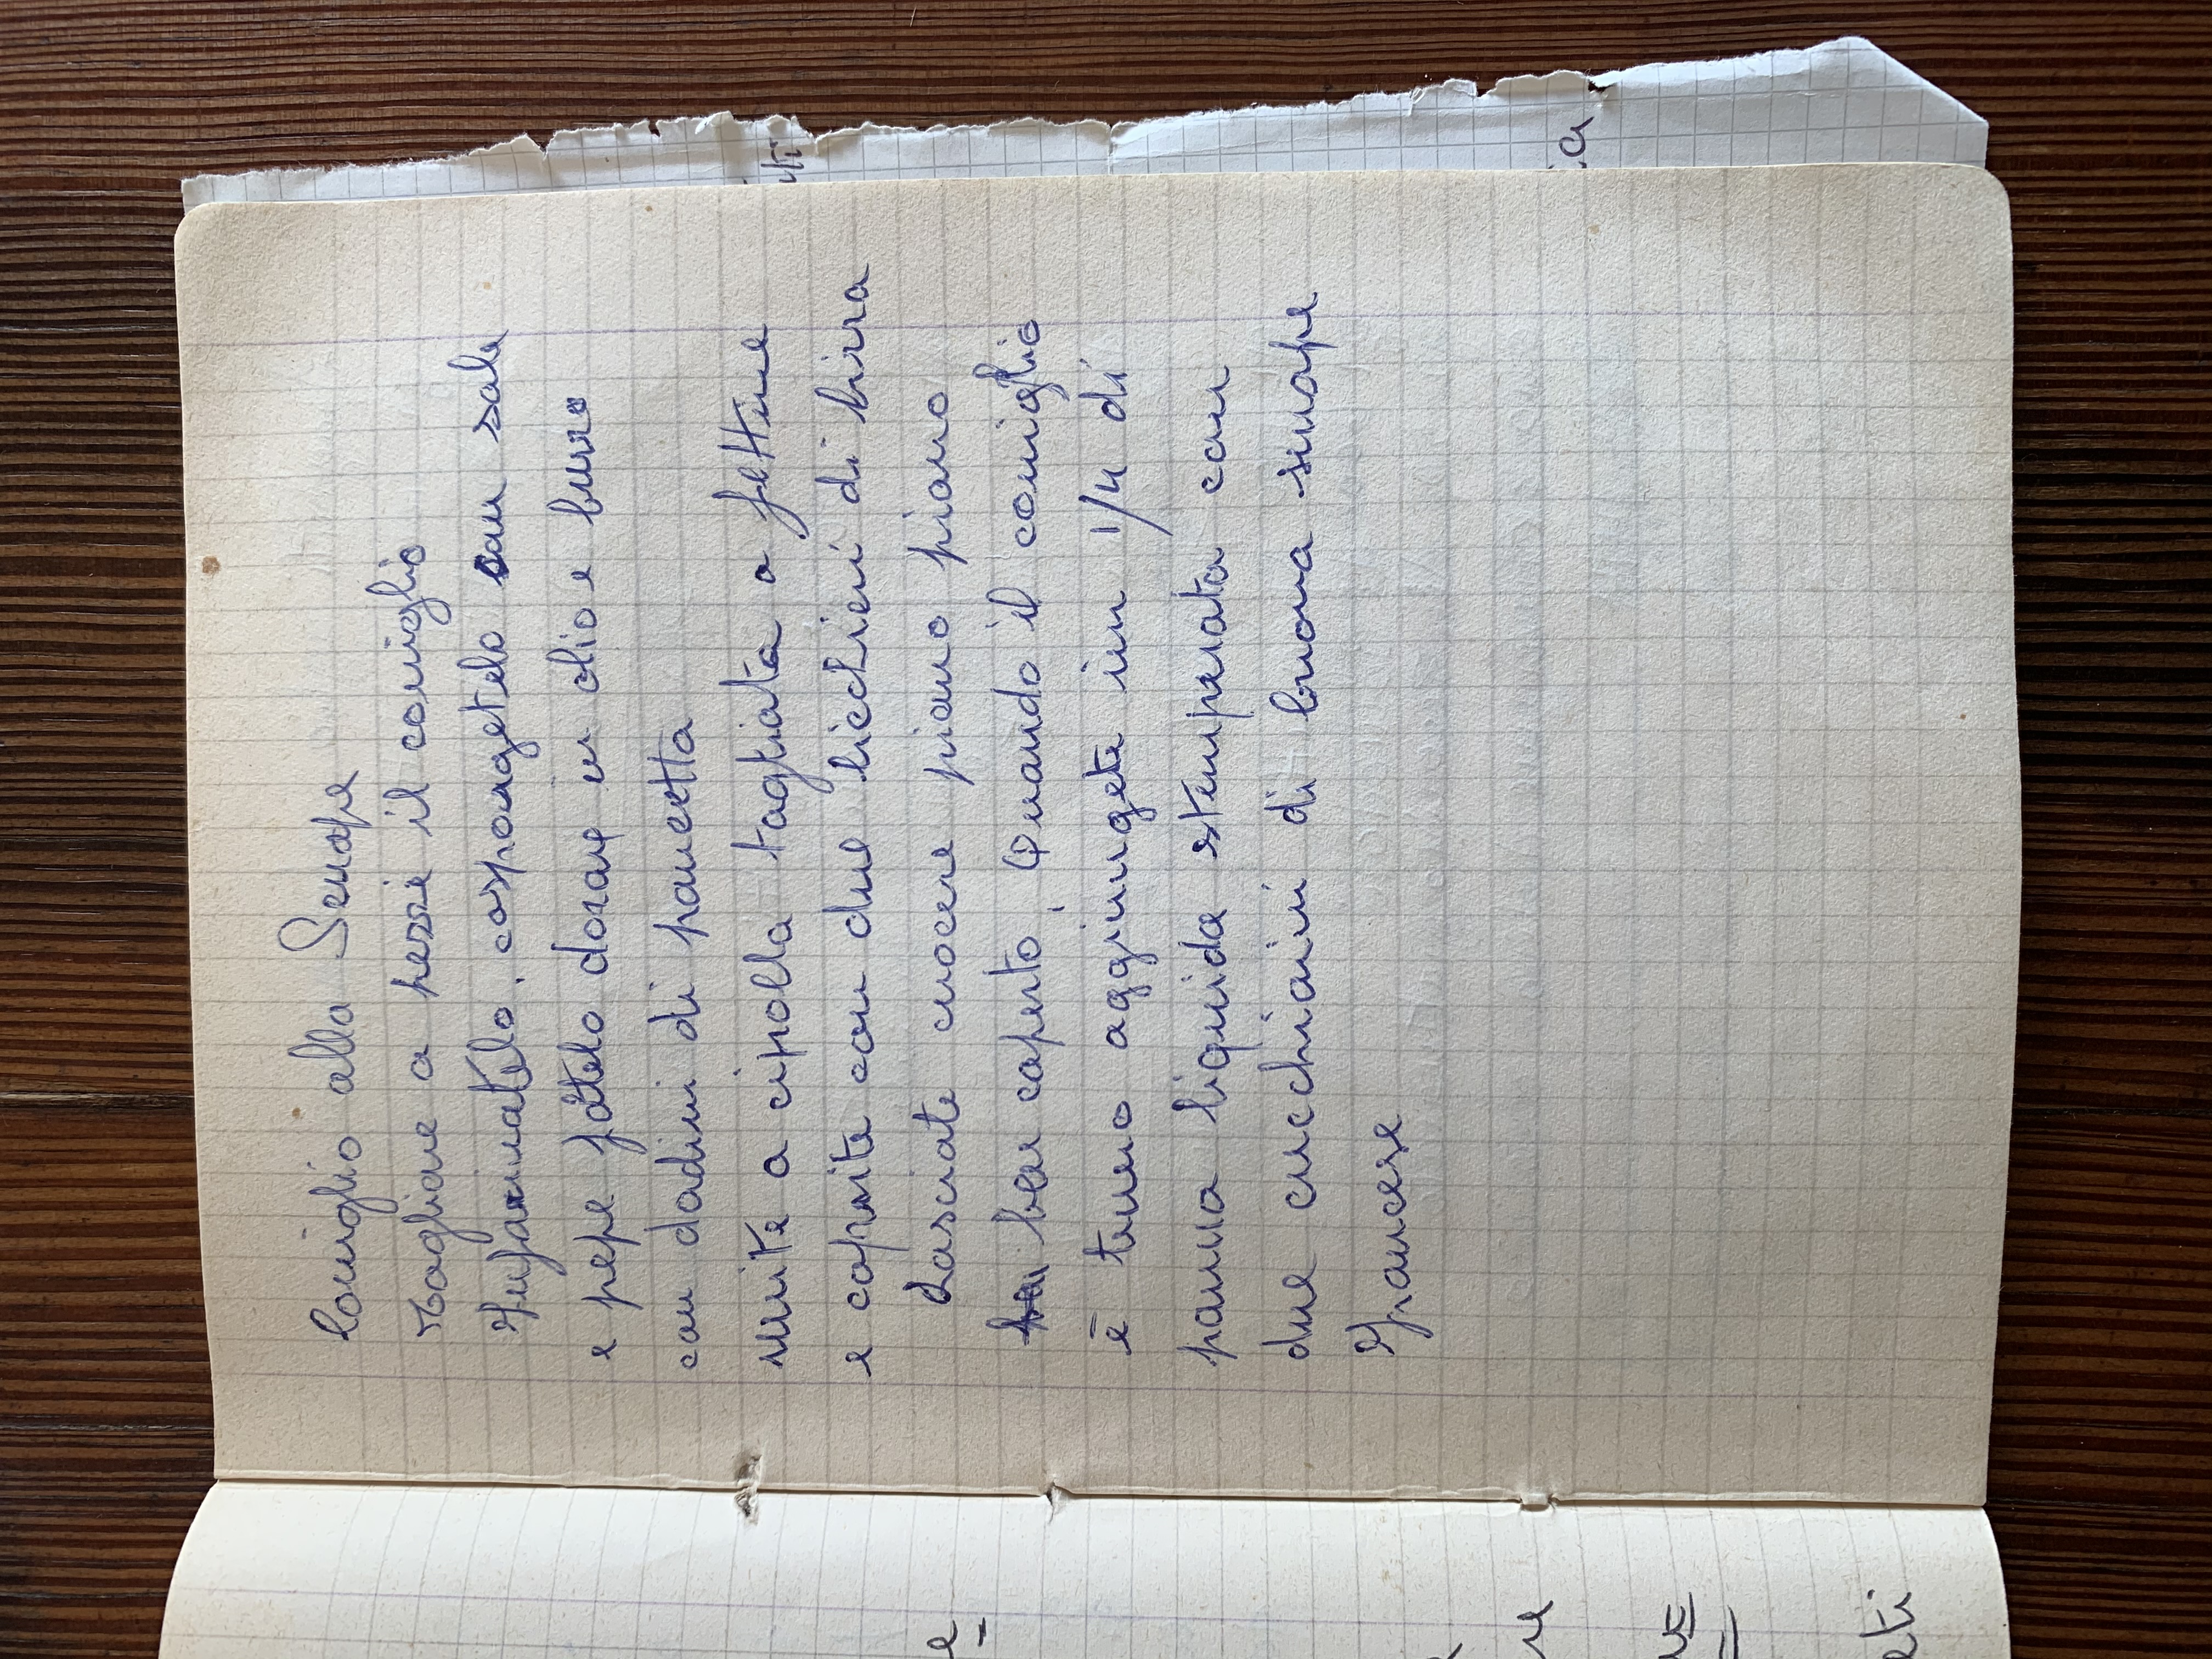 Coniglio alla Senape
Tagliare a pezzi il coniglio
Infarinatelo, cospargetelo con sale
e pepe fatelo dorare in olio e burro
con dadini di pancetta
unite a cipolla tagliata a fettine
e coprite con due bicchieri di birra
Lasciate cuocere piano piano
ben coperto, Quando il coniglio
è tenero aggiungete un 1/4 di
panna liquida stemperata con
due cucchiaini di buona senape
Francese